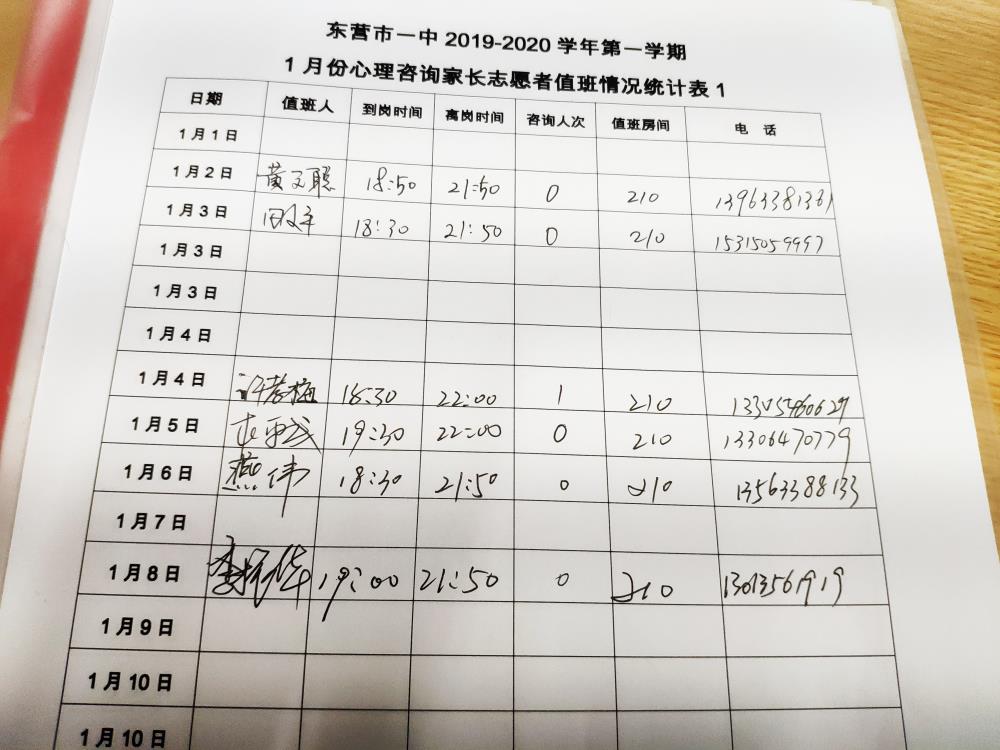 东营市一中 2019-2020 学年第一学期
1 月份心理咨询家长志愿者值班情况统计表 1
日期 值班人 到岗时间 离岗时间 咨询人次 值班房间 电 话
1 月 1 日
1 月 2 日 黄文聪 18:50 21:50 0 210 13963381361
1 月 3 日 18:30 21:50 0 210 15315059997
1 月 3 日
1 月 3 日
1 月 4 日
1 月 4 日 许孝梅 18:30 22:00 1 210 13305460629
1 月 5 日 19:30 22:00 0 210 13306470779
1 月 6 日 燕伟 18:30 21:50 0 210 13563388133
1 月 7 日
1 月 8 日 19:00 21:50 0 210 13013561919
1 月 9 日
1 月 10 日
1 月 10 日